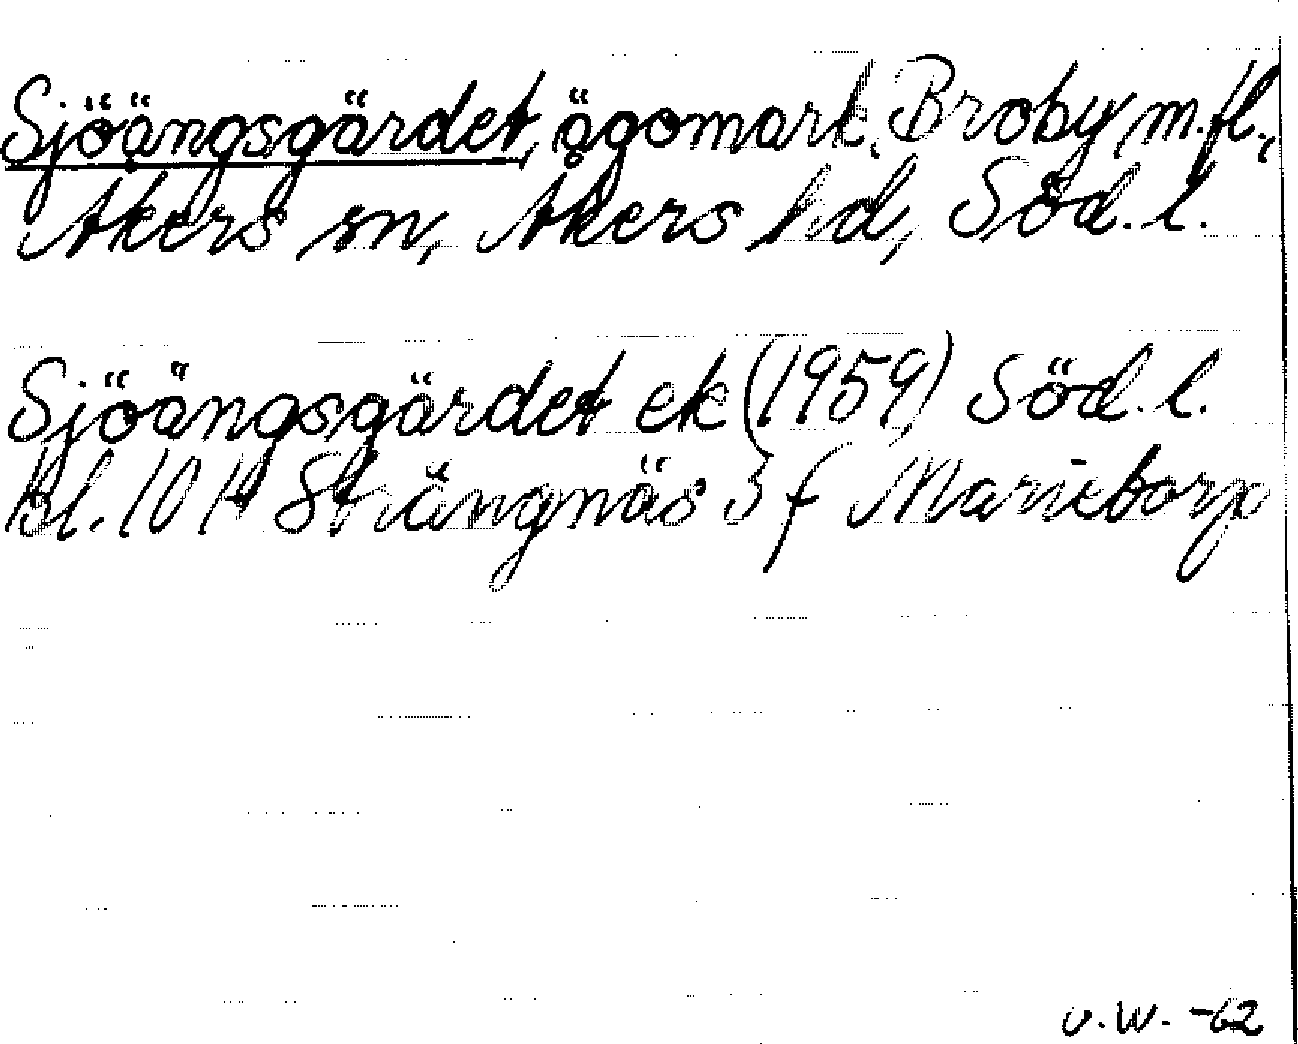 Sjöängsgärdet, ägomark, Broby m.fl.,
Åkers sn, Åkers hd, Söd.l.
Sjöängsgärdet ek (1959) Söd.l.
Bl. 10 H Strängnäs 3 f Marietorp
v.W. -62